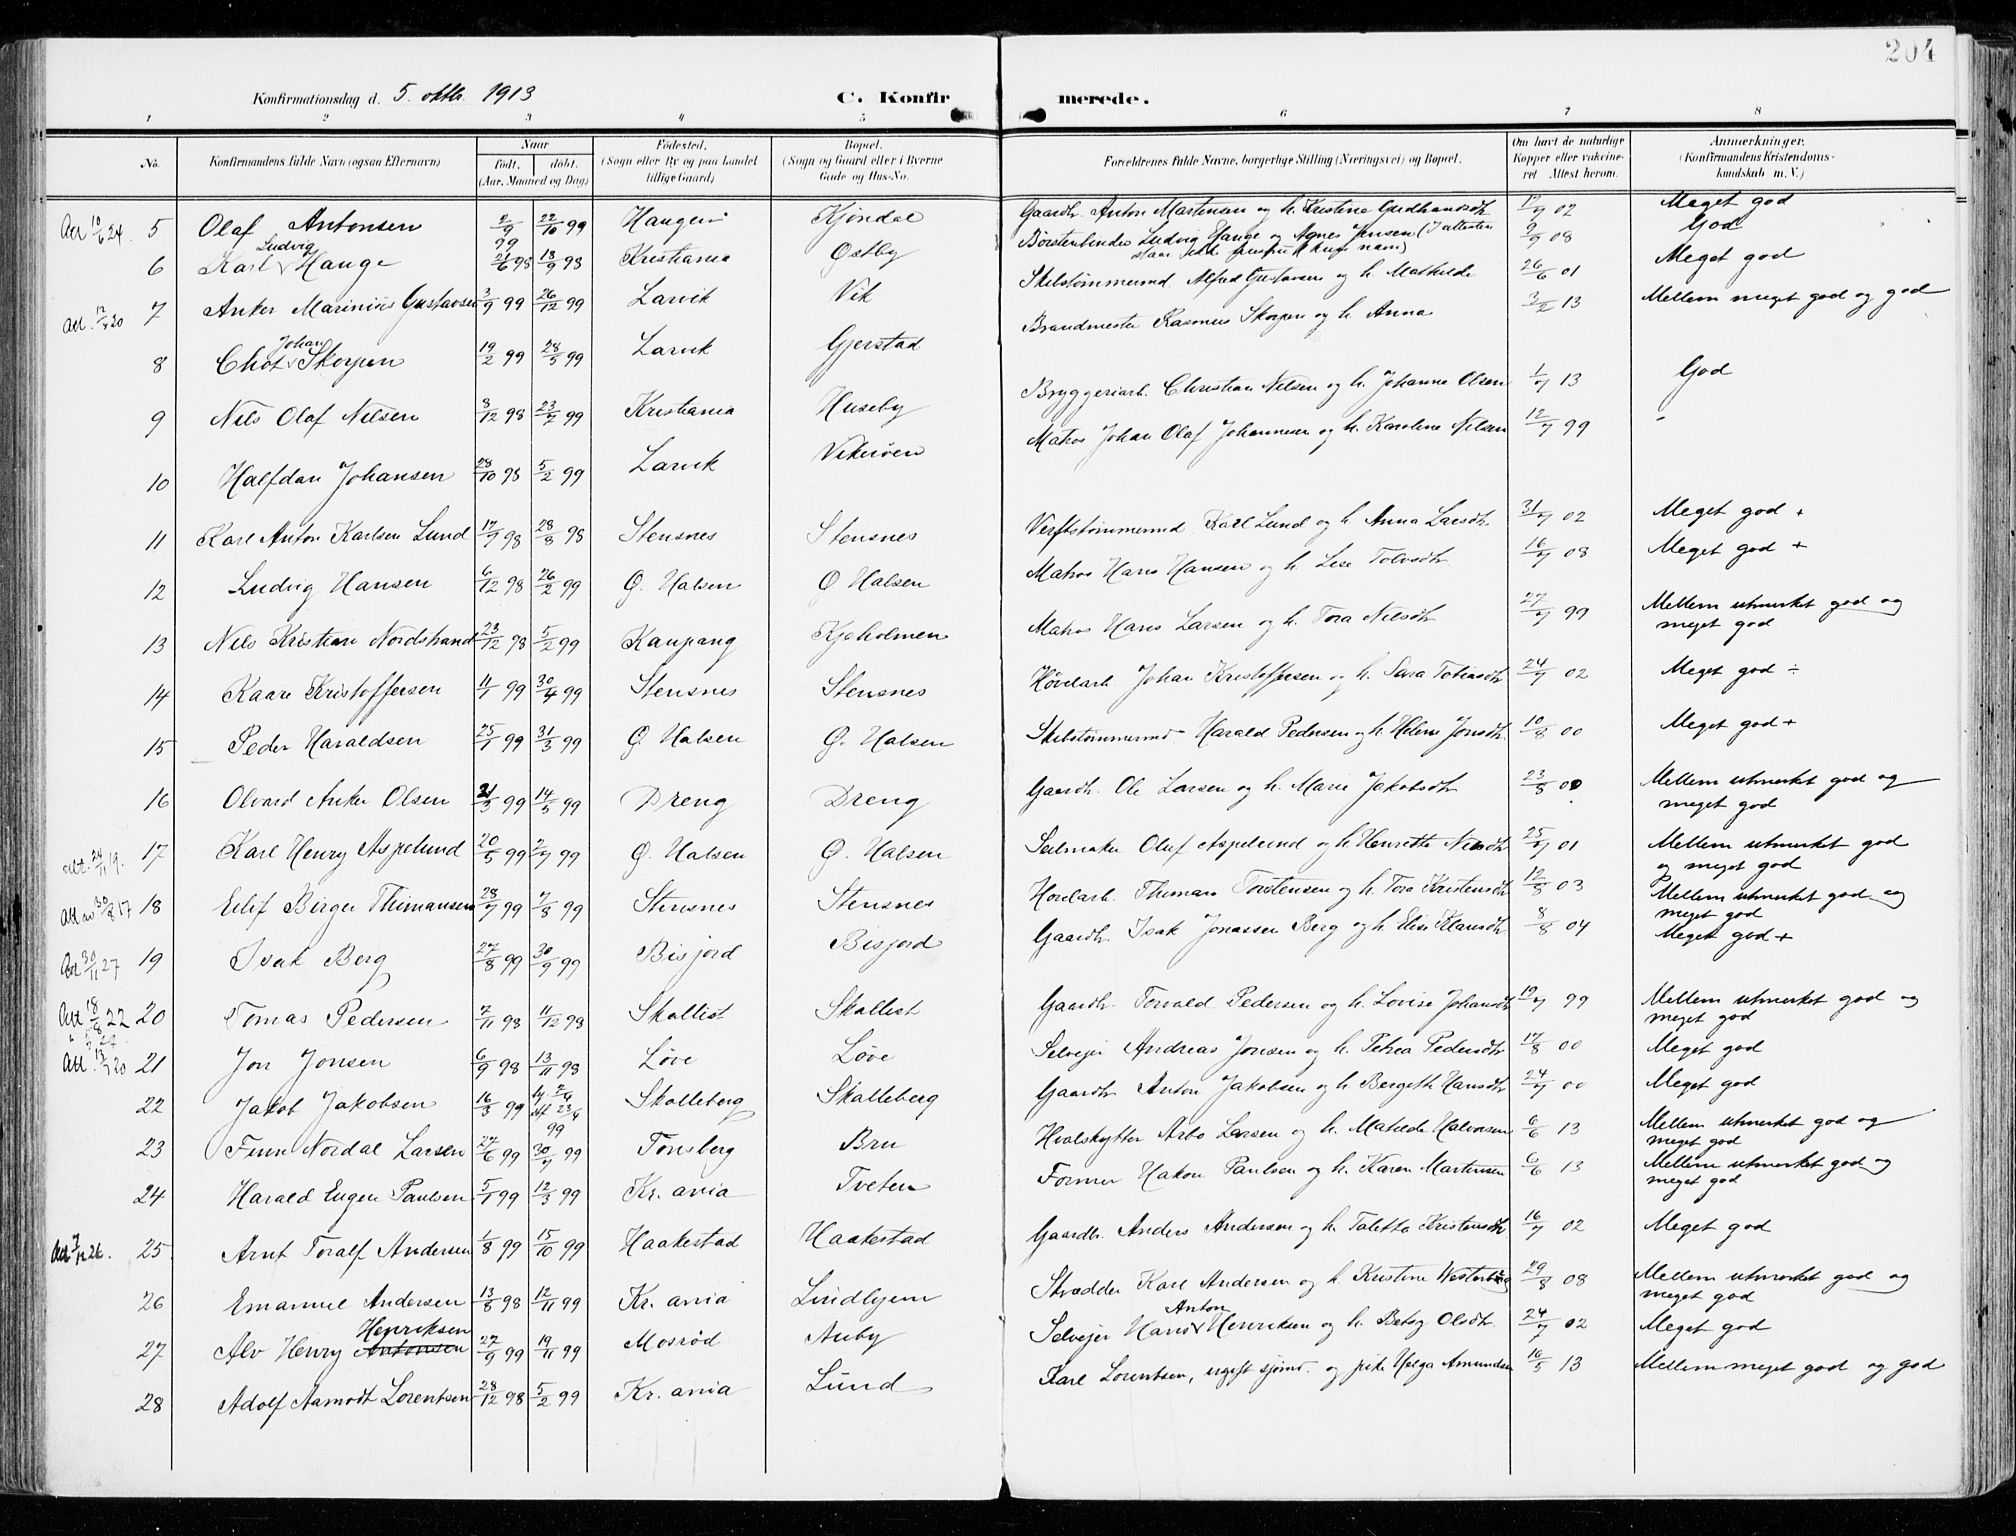 204
Konfirmationsdag d. 5. oktb. 1913 C. Konfirmerede.
1 2 3 4 5 6 7 8
No. Konfirmandens fulde Navn (ogsaa Efternavn) Naar født. døbt. (Aar, Maaned og Dag) Fødested. (Sogn eller By og paa Landet tillige Gaard) Bopæl. (Sogn og Gaard eller i Byerne Gade og Hus-No. Forældrenes fulde Navne, borgerlige Stilling (Næringsvei) og Bopæl. Om havt de naturlige Kopper eller vakcineret Attest herom. Anmærkninger. (Konfirmandens Kristendomskundskab m. V.)
Att 10/6 24. 5 Olaf Antonsen 2/9 99 22/10 99 Haugen Kjøndal Gaardbr. Anton Martensen og h. Kristine 02 Meget god
6 Karl Ludvig Hauge 21/6 98 18/9 98 Kristiania Østby Børstenbinder Ludvig Hauge og Agnes Jensen (I attesten staar navn) 9/9 08 God
7 Anker Marinius Gustavsen 3/9 99 26/12 99 Larvik Vik Skibstømmermd. Alfred Gustavsen og h. Mathilde 26/6 01 Meget god
8 Johan Skorpen 19/2 99 28/5 99 Larvik Gjerstad Brandmester Rasmus Skorpen og h. Anna 3/2 13 Mellem meget god og god
9 Nils Olaf Nilsen 8/12 98 23/7 99 Kristiania Huseby Bryggeriarb. Christian Nilsen og h. Johanne Olsen 1/7 13 God
10 Halfdan Johansen 28/10 98 5/2 99 Larvik Vikerøen Matros Johan Olaf Johannesen og h. Karoline Nilsen 12/7 99 -
11 Karl Anton Karlsen Lund 17/7 98 28/8 98 Stensnes Stensnes Verftstømmermd. Karl Lund og h. Anna Larsdtr 31/7 02 Meget god +
12 Ludvig Hansen 6/12 98 26/2 99 Ø. Halsen Ø Halsen Matros Hans Hansen og h. Lise 16/7 08 Meget god +
13 Nils Kristian Nordstrand 23/12 98 5/2 99 Kaupang Kjeholmen Matros Hans Larsen og h. Tora Nilsdtr 27/7 99 Mellem utmerket god og meget god
14 Kaare Kristoffersen 11/1 99 30/4 99 Stensnes Stensnes Høvlarb. Johan Kristoffersen og h. Sara Tobiasdtr 24/7 02 Meget god ÷
15 Peder Haraldsen 25/1 99 31/3 99 Ø. Halsen Ø. Halsen Skibstømmermd. Harald Pedersen og h. Helene Jonsdtr. 10/8 00 Meget god +
16 Olvard Anker Olsen 21/3 99 14/5 99 Dreng Dreng Gaardbr. Ole Larsen og h. Marie Jakobsdtr 23/8 00 Mellem utmerket god og meget god
24/11 19. 17 Karl Henry Aspelund 20/5 99 2/7 99 Ø. Halsen Ø. Halsen Seilmaker Oluf Aspelund og h. Henriette Nilsdtr 25/7 01 Mellem utmerket god og meget god
30/8 17 18 Eilif Birger Thimansen 28/7 99 7/8 99 Stensnes Stensnes Høvlarb. Thiman Torstensen og h. Tora Kristensdtr 12/8 03 Mellem utmerket god og meget god
30/11 27 19 Isak Berg 27/8 99 30/9 99 Bisjord Bisjord Gaardbr. Isak Jonassen Berg og h. Elise Klausdtr 8/8 04 Meget god +
Att 18/8 22 20 Tomas Pedersen 7/11 98 11/12 98 Skallist Skallist Gaardbr. Torvald Pedersen og h. Lovise Johansdtr 19/7 99 Mellem utmerket god og meget god
Att. 13/1 20 21 Jon Jonsen 6/9 98 13/11 98 Løve Løve Selveier Andreas Jonsen og h. Petrea Pedersdtr 17/8 00 Meget god
22 Jakob Jakobsen 16/3 99 23/4 99 Skalleberg Skalleberg Gaardbr Anton Jakobsen og h. Bergethe Hansdtr 24/7 00 Meget god
23 Finn Nordal Larsen 27/6 99 30/7 99 Tønsberg Bru Hvalskytter Arbo Larsen og h. Matilde Halvorsen 6/6 13 Mellem utmerket god og meget god
24 Harald Eugen Paulsen 5/1 99 12/3 99 Kr. ania Tveten Former Hakon Paulsen og h. Karen Martinsen 6/6 13 Mellem utmerket god og meget god
25 Arnt Toralf Andersen 1/8 99 15/10 99 Haakestad Haakestad Gaardbr. Anders Andersen og h. Taletta Kristensdtr 16/7 02 Meget god
26 Emanuel Andersen 13/8 98 12/11 99 Kr. ania Lindhjem Skrædder Karl Andersen og h. Kristine 29/8 08 Mellem utmerket god og meget god
27 Alv Henry Antonsen Henriksen 27/9 99 19/11 99 Mosrød Auby Selveier Hans Anton Henriksen og h. Betsy Olsdtr. 24/7 02 Meget god
28 Adolf Aamodt Lorentsen 28/12 98 5/2 99 Kr. ania Lund Karl Lorentsen, ugift sjømd. og pike Helga Amundsen 16/5 13 Mellem meget god og god